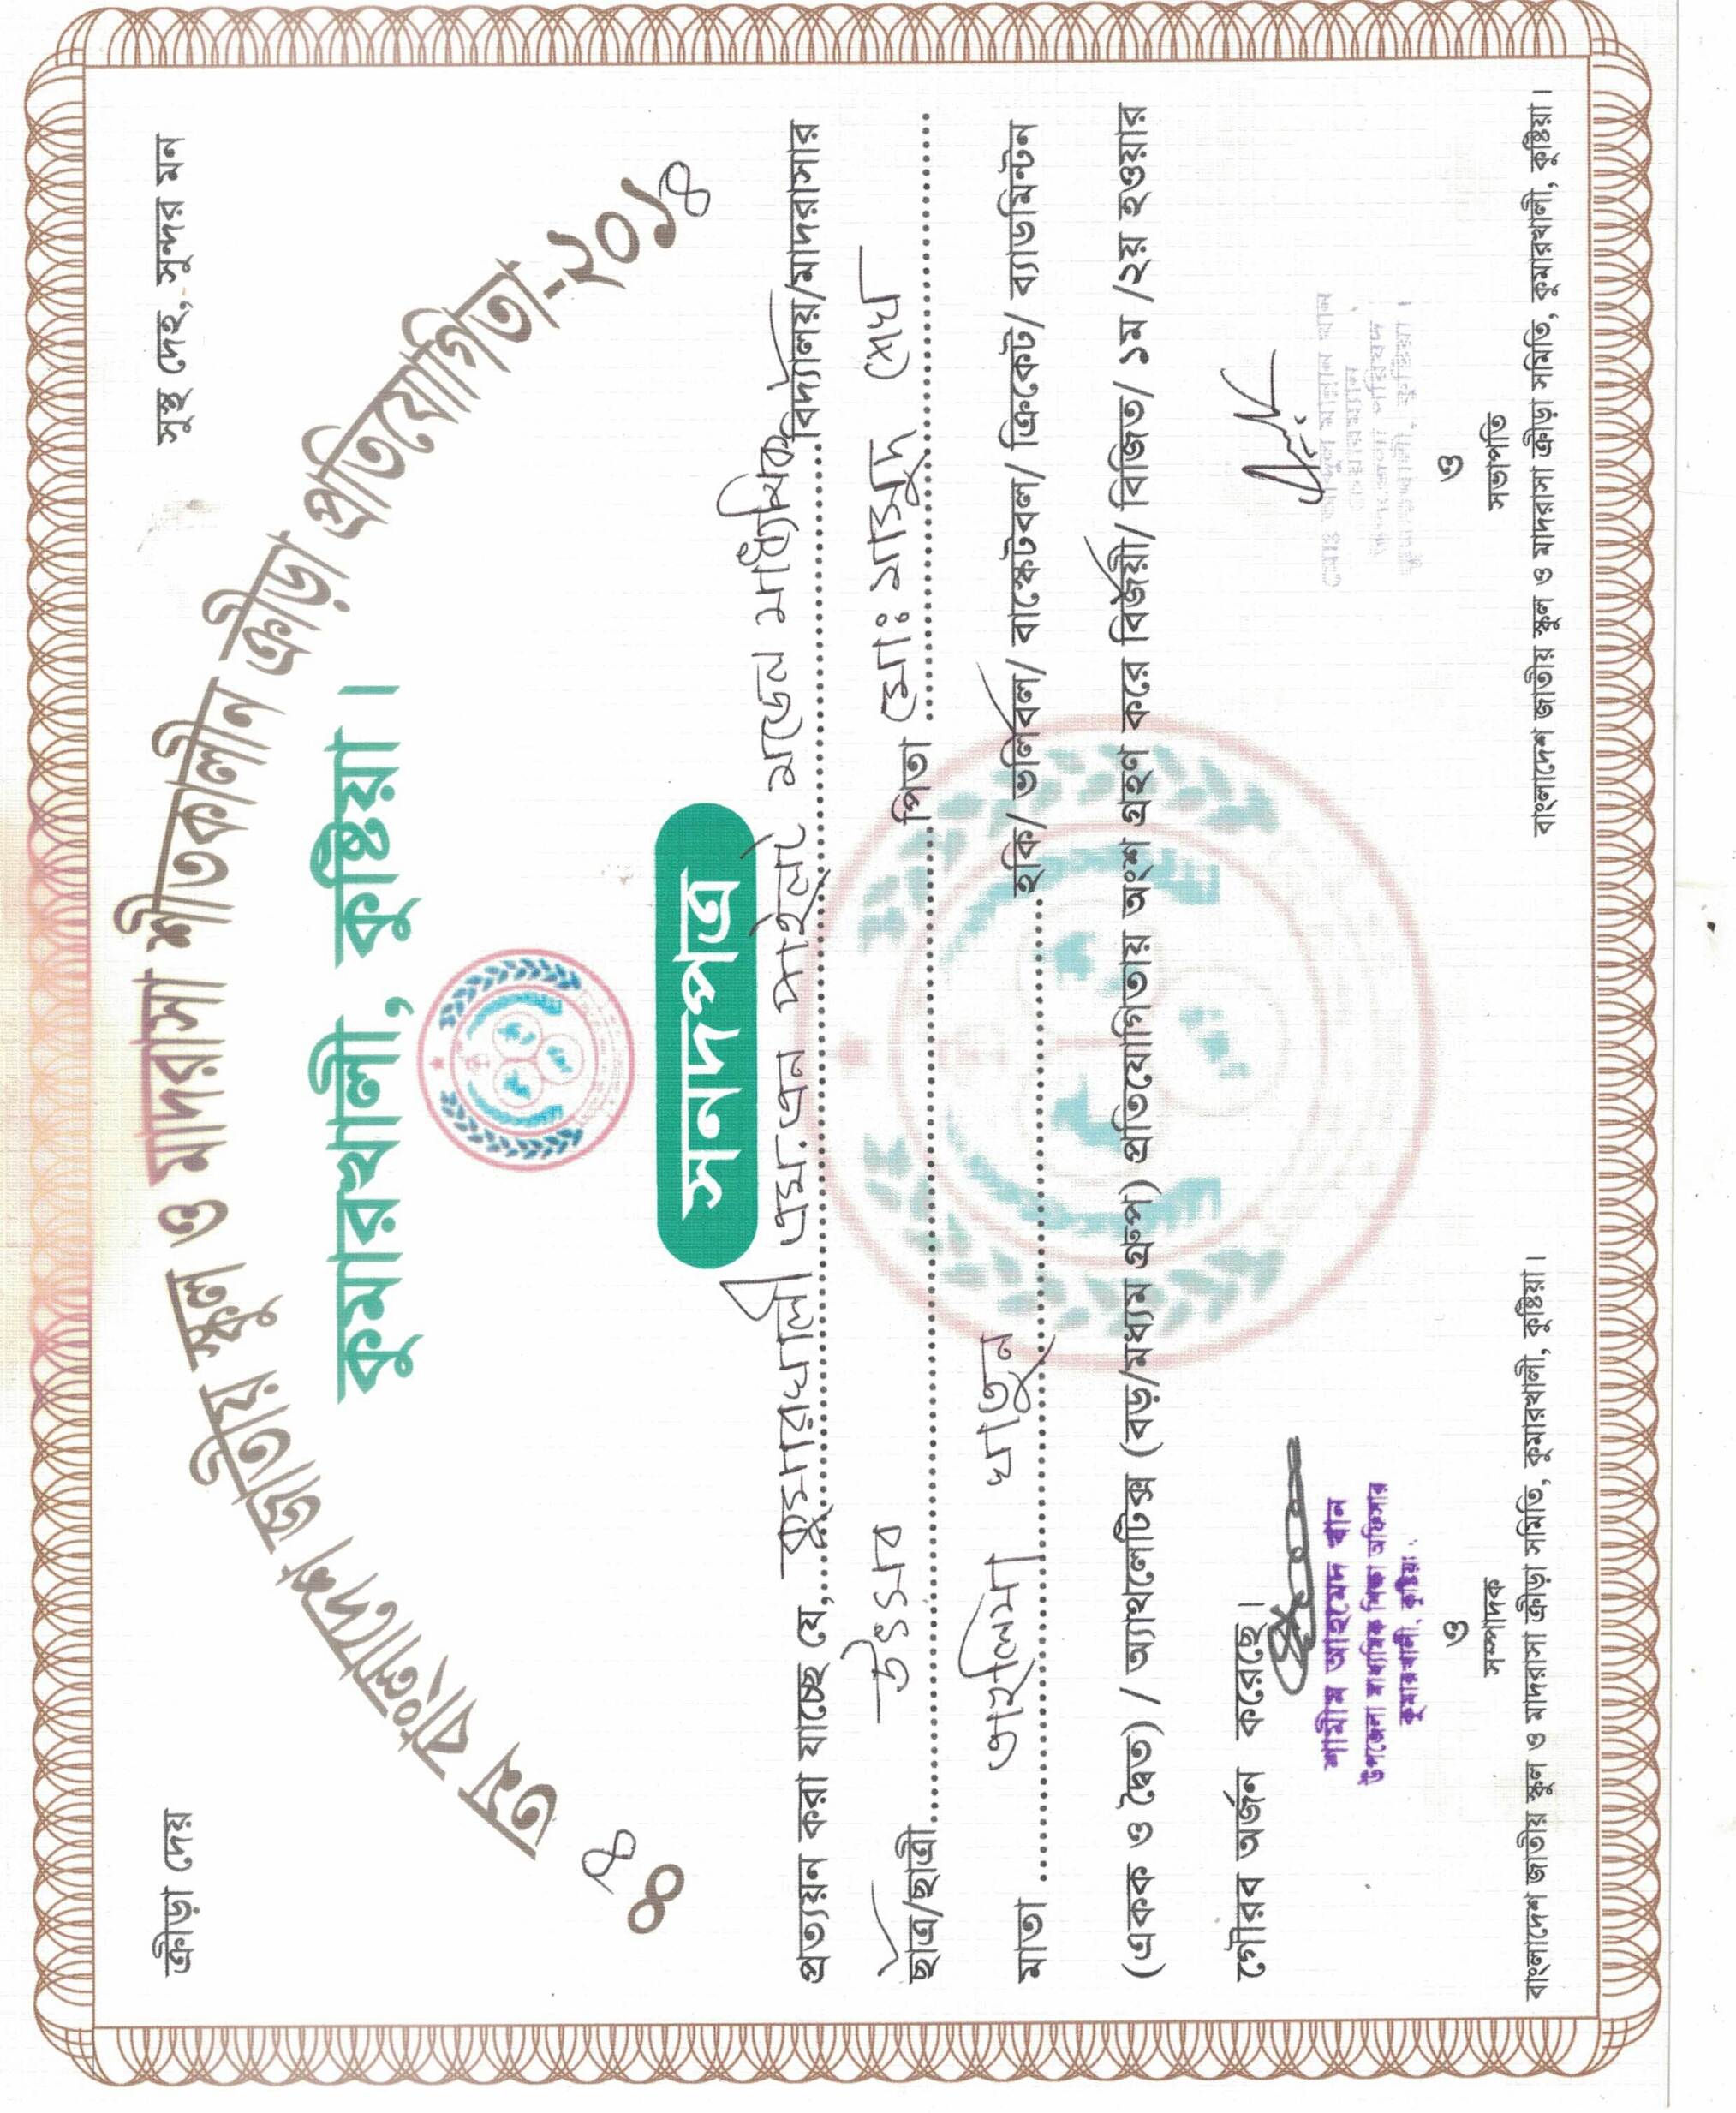 ক্রীড়া দেয়
সুস্থ দেহ, সুন্দর মন
৪৪ তম বাংলাদেশ জাতীয় স্কুল ও মাদরাসা শীতকালীন ক্রীড়া প্রতিযোগিতা-২০১৪
কুমারখালী, কুষ্টিয়া।
সনদপত্র
প্রত্যয়ন করা যাচ্ছে যে, কুমারখালী এম.এন পাইলট মডেল মাধ্যমিক বিদ্যালয়/মাদরাসার
ছাত্র/ছাত্রী উৎসব পিতা মোঃ মাসুদ শেখ
মাতা তাহলিমা খাতুন হকি/ ভলিবল/ বাস্কেটবল/ ক্রিকেট/ ব্যাডমিন্টন
(একক ও দ্বৈত) / অ্যাথলেটিক্স (বড়/মধ্যম গ্রুপ) প্রতিযোগিতায় অংশ গ্রহণ করে বিজয়ী/ বিজিত/ ১ম /২য় হওয়ার
গৌরব অর্জন করেছে।
শামীম আহমেদ খান
উপজেলা মাধ্যমিক শিক্ষা অফিসার
কুমারখালী, কুষ্টিয়া
ও
সম্পাদক
বাংলাদেশ জাতীয় স্কুল ও মাদরাসা ক্রীড়া সমিতি, কুমারখালী, কুষ্টিয়া।
মোঃ আব্দুল মান্নান খান
চেয়ারম্যান
উপজেলা পরিষদ
কুমারখালী, কুষ্টিয়া।
ও
সভাপতি
বাংলাদেশ জাতীয় স্কুল ও মাদরাসা ক্রীড়া সমিতি, কুমারখালী, কুষ্টিয়া।